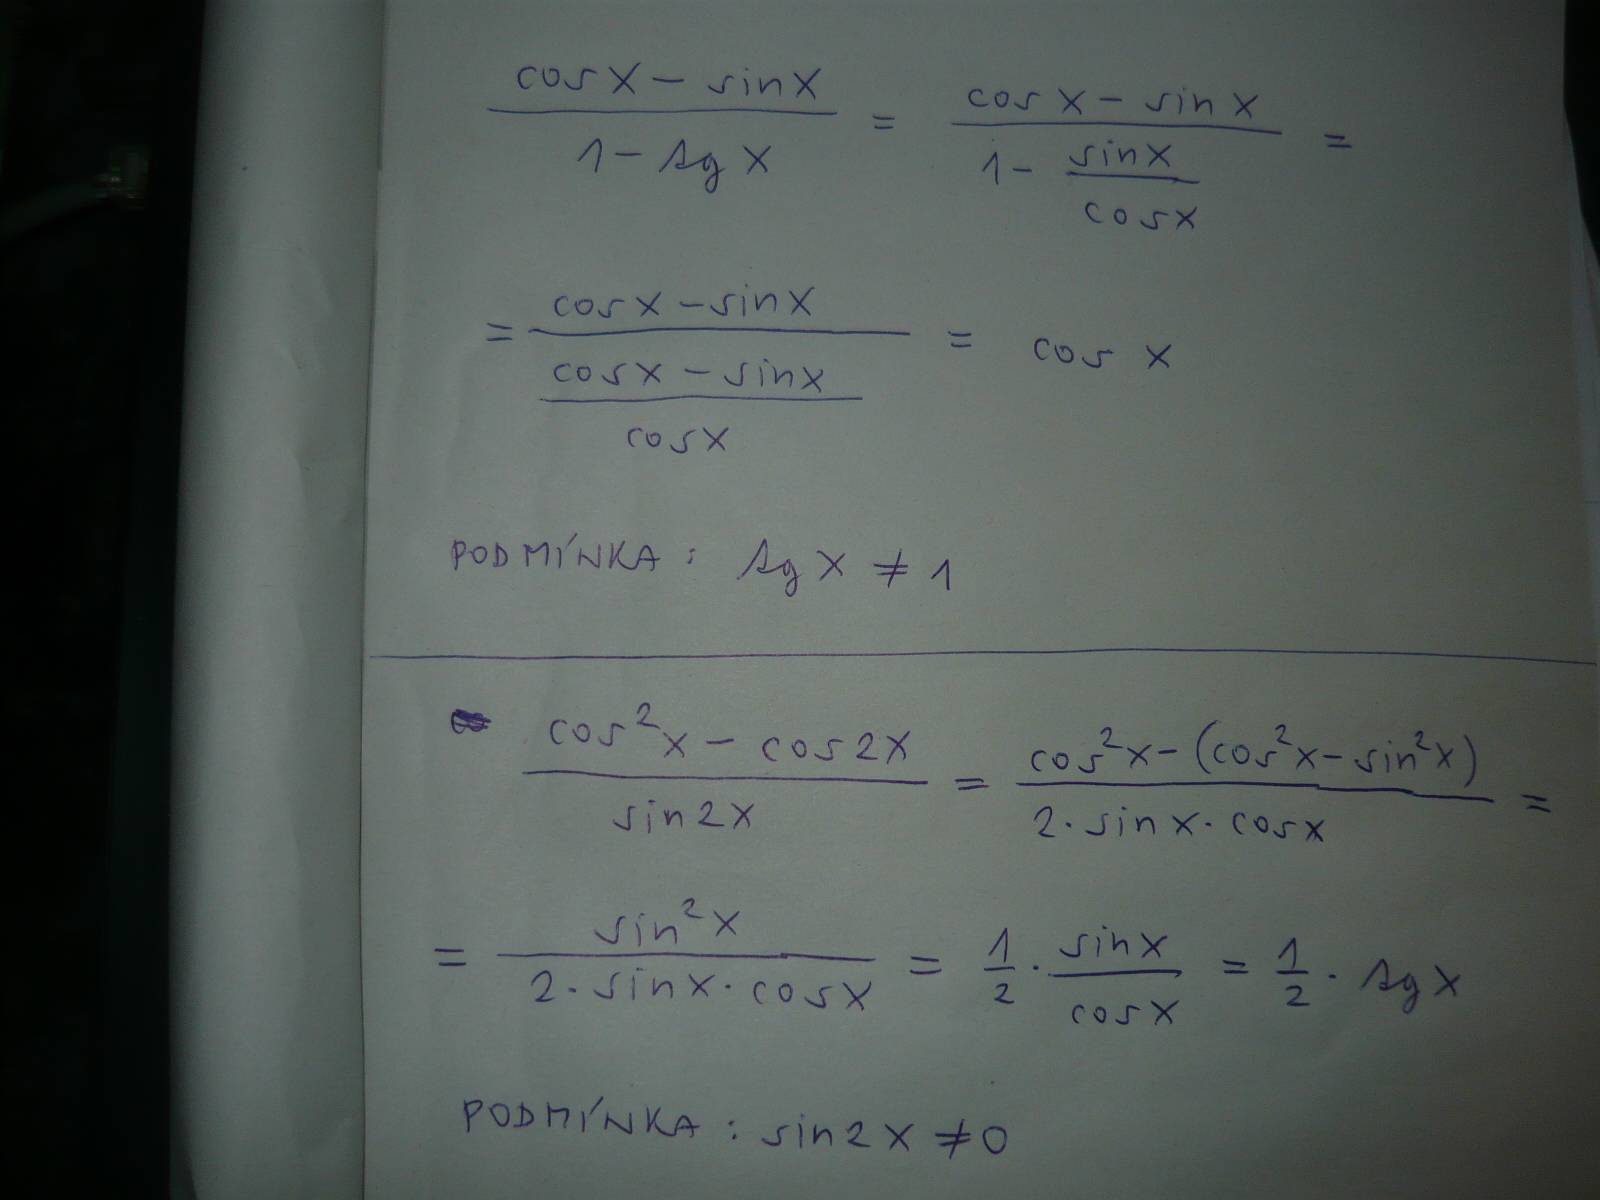 (cos x - sin x)/(1 - tg x) = (cos x - sin x)/(1 - (sin x)/(cos x)) =
= (cos x - sin x)/((cos x - sin x)/(cos x)) = cos x
PODMÍNKA: tg x ≠ 1
(cos²x - cos2x)/(sin2x) = (cos²x - (cos²x - sin²x))/(2·sin x·cos x) =
= (sin²x)/(2·sin x·cos x) = 1/2 · (sin x)/(cos x) = 1/2 · tg x
PODMÍNKA: sin2x ≠ 0